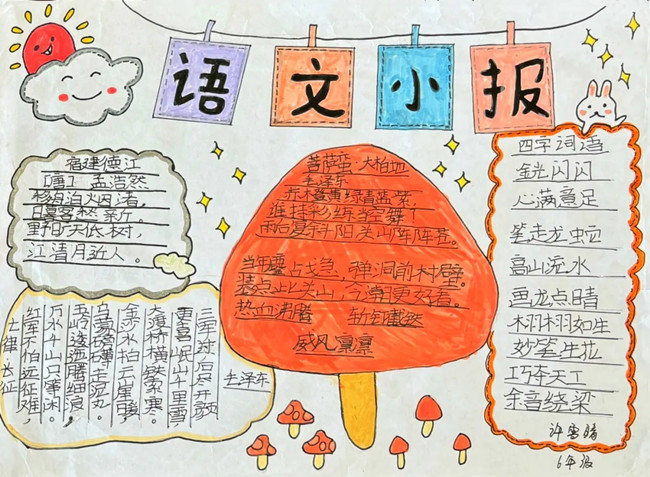 语文小报
宿建德江
[唐] 孟浩然
移舟泊烟渚,
日暮客愁新。
野旷天低树,
江清月近人。
菩萨蛮·大柏地
毛泽东
赤橙黄绿青蓝紫,
谁持彩练当空舞?
雨后复斜阳,关山阵阵苍。
当年鏖战急,弹洞前村壁。
装点此关山,今朝更好看。
热血沸腾 斩钉截铁
威风凛凛
七律长征
红军不怕远征难,
万水千山只等闲。
五岭逶迤腾细浪,
乌蒙磅礴走泥丸。
金沙水拍云崖暖,
大渡桥横铁索寒。
更喜岷山千里雪,
三军过后尽开颜
毛泽东
四字词语
金光闪闪
心满意足
笔走龙蛇
高山流水
画龙点睛
栩栩如生
妙笔生花
巧夺天工
余音绕梁
6年级